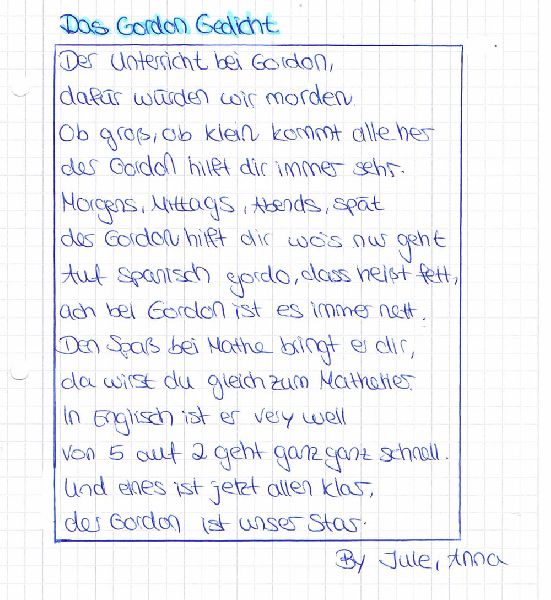 Das Gordon Gedicht
Der Unterricht bei Gordon,
dafür würden wir morden.
Ob groß, ob klein kommt alle her
der Gordon hilft dir immer sehr.
Morgens, Mittags, Abends, spät
der Gordon hilft dir wo's nur geht
Auf spanisch gordo, dass heißt fett,
ach bei Gordon ist es immer nett.
Den Spaß bei Mathe bringt er dir,
da wirst du gleich zum Mathetier.
In Englisch ist er very well
von 5 auf 2 geht ganz ganz schnell.
Und eines ist jetzt allen klar,
der Gordon ist unser Star.
By Jule, Anna